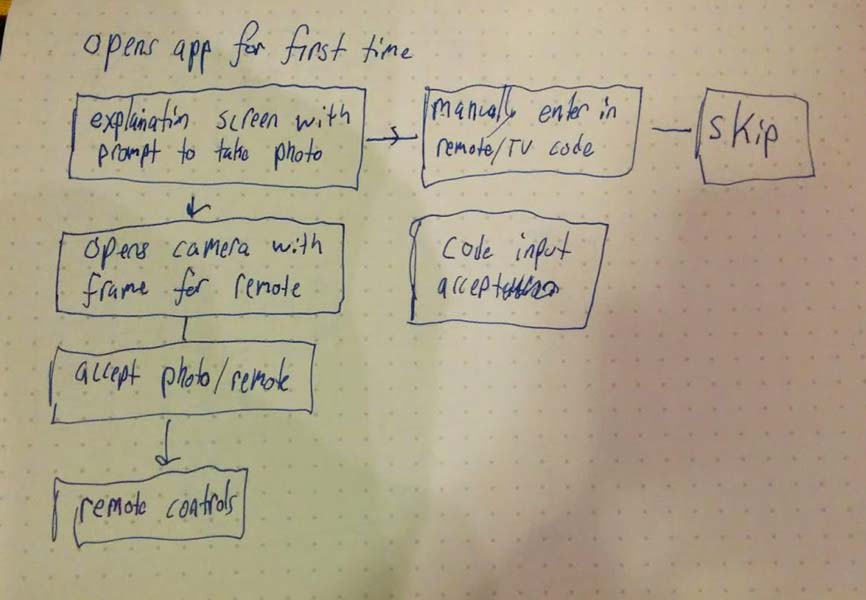 opens app for first time
explanation screen with
prompt to take photo
manually enter in
remote/TV code
skip
opens camera with
frame for remote
code input
accept
accept photo/remote
remote controls